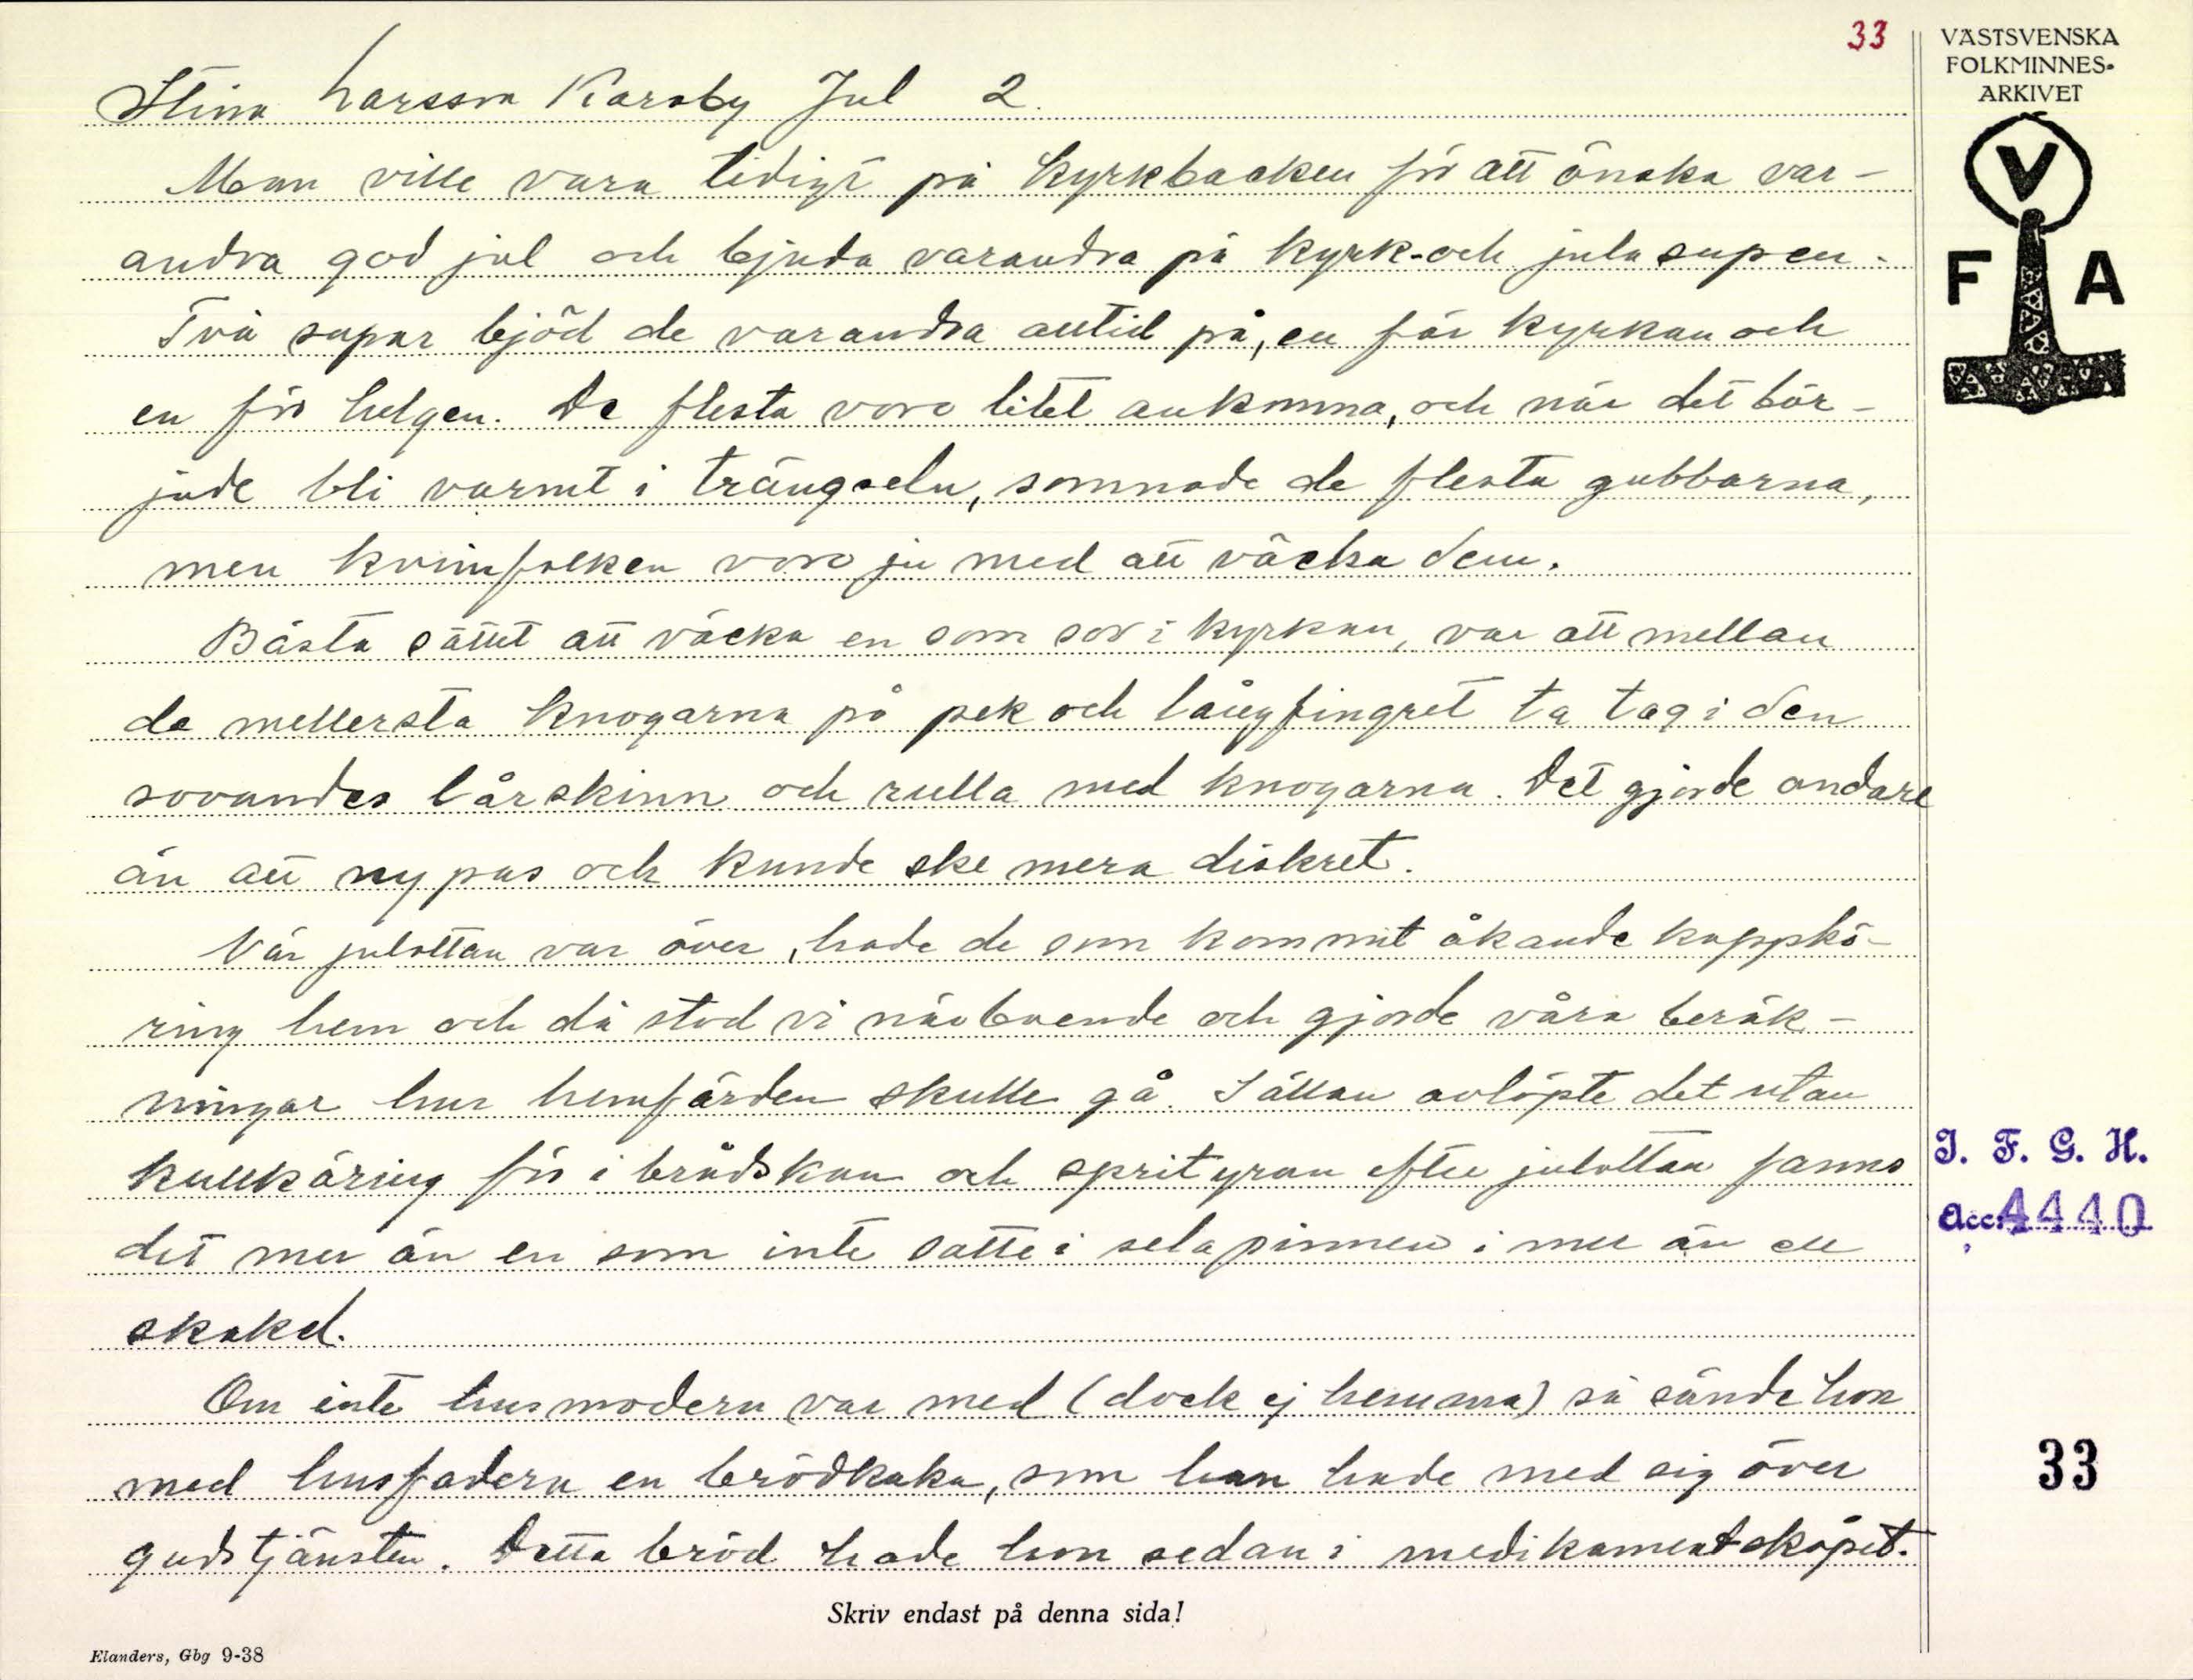 33
VÄSTSVENSKA
FOLKMINNES-
ARKIVET
V
F A
Stina Larsson Karaby Jul 2.
Man ville vara tidigt på kyrkbacken för att önska var-
andra god jul och bjuda varandra på kyrk-och julasupen.
Två supar bjöd de varandra alltid på, en för kyrkan och
en för helgen. De flesta voro litet ankomna, och när det bör-
jade bli varmt i trängseln, somnade de flesta gubbarna,
men kvinnfolken voro ju med att väcka dem.
Bästa sättet att väcka en som sov i kyrkan, var att mellan
de mellersta knogarna på pek och långfingret ta tag i den
sovandes lårskinn och rulla med knogarna. Det gjorde ondare
än att nypas och kunde ske mera diskret.
När julottan var över, hade de som kommit åkande kappkö-
ring hem och då stod vi närboende och gjorde våra beräk-
ningar hur hemfärden skulle gå. Sällan avlöpte det utan
kullköring för i brådskan och sprityran efter julottan fanns
det mer än en som inte satte i selapinnen i mer än en
skakel.
Om inte husmodern var med (dock ej hemma) så sände hon
med husfadern en brödkaka, som han hade med sig över
gudstjänsten. Detta bröd hade hon sedan i medikamentskåpet.
I. F. G. H.
Acc. 4440
33
Skriv endast på denna sida!
Elanders, Gbg 9-38